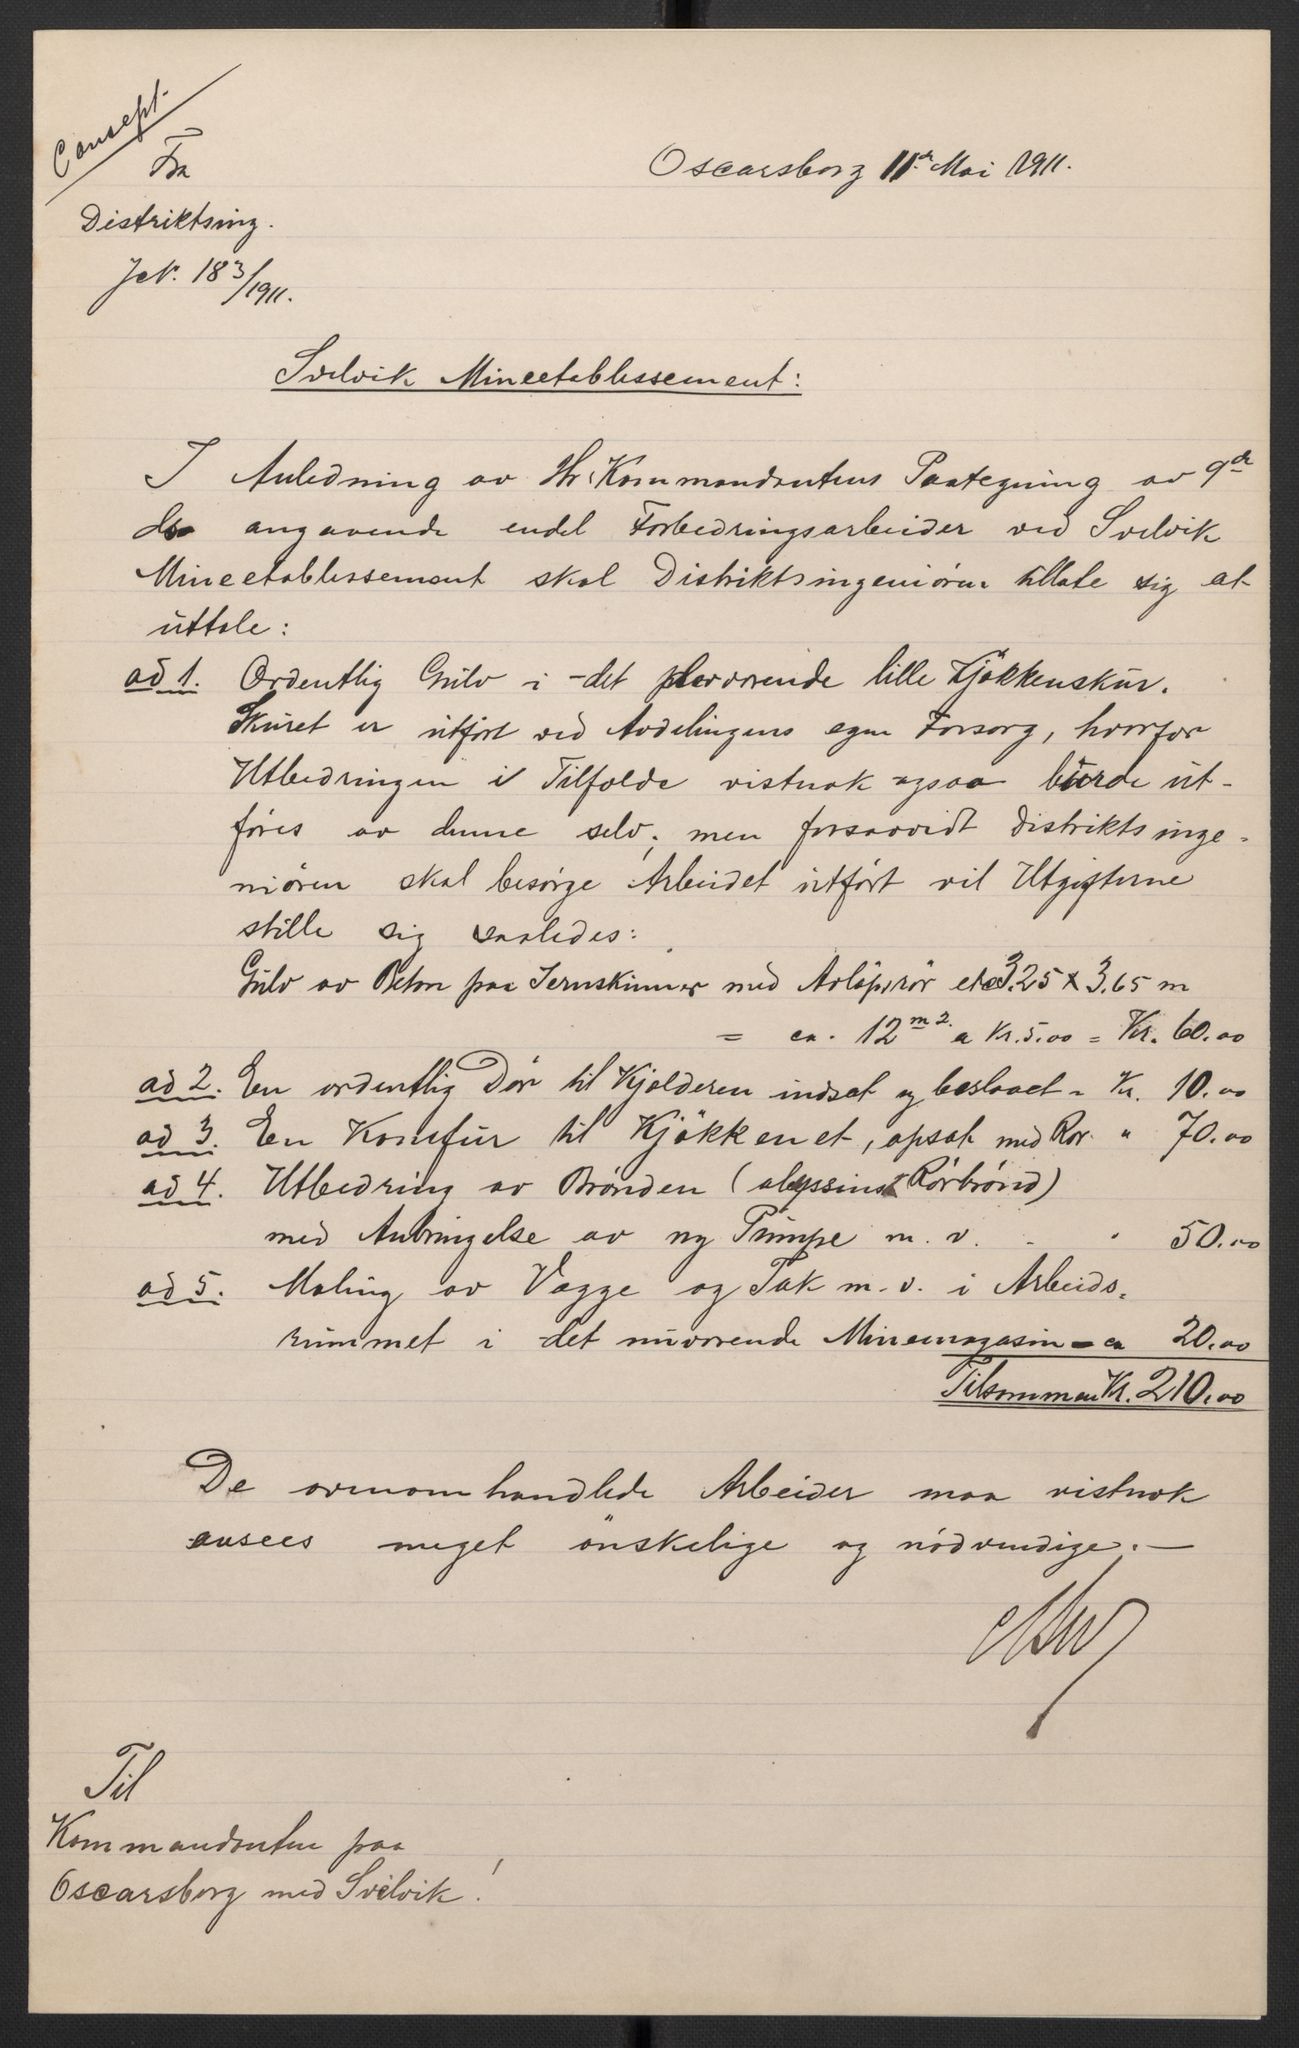 Consept.
Fra
Distriktsing.
JoN. 183/1911.
Oscarsborg 11te Mai 1911.
Svelvik Mineetablissement:
I Anledning av Hr. Kommandantens Paategning av 9de
ds angaaende endel Forbedringsarbeider ved Svelvik
Mineetablissement skal Distriktsingeniøren tillate sig at
uttale:
ad 1. Ordentlig Gulv i det værende lille Kjøkkenskur.
Skuret er utført ved Avdelingens egen Forsorg, hvorfor
Utbedringen i Tilfælde vistnok ogsaa burde ut-
føres av denne selv; men forsaavidt Distriktsinge-
niøren skal besørge Arbeidet utført vil Utgifterne
stille sig saaledes:
Gulv av Beton paa Jernskinner med Avløpsrør etc 3.25 x 3.65 m
= ca. 12 m2. a Kr. 5.00 = Kr. 60.00
ad 2. En ordentlig Dør til Kjælderen indsat og beslaaet = Kr. 10.00
ad 3. En Komfur til Kjøkkenet, opsat med Rør. " 70.00
ad 4. Utbedring av Brønden (abyssinsk Rørbrønd)
med Anbringelse av ny Pumpe m. v. - " 50.00
ad 5. Maling av Vægge og Tak m. v. i Arbeids-
rummet i det nuværende Minemagasin = ca 20.00
Tilsammen Kr. 210.00
De ovenomhandlede Arbeider maa vistnok
ansees meget ønskelige og nødvendige. —
Til
Kommandanten paa
Oscarsborg med Svelvik!